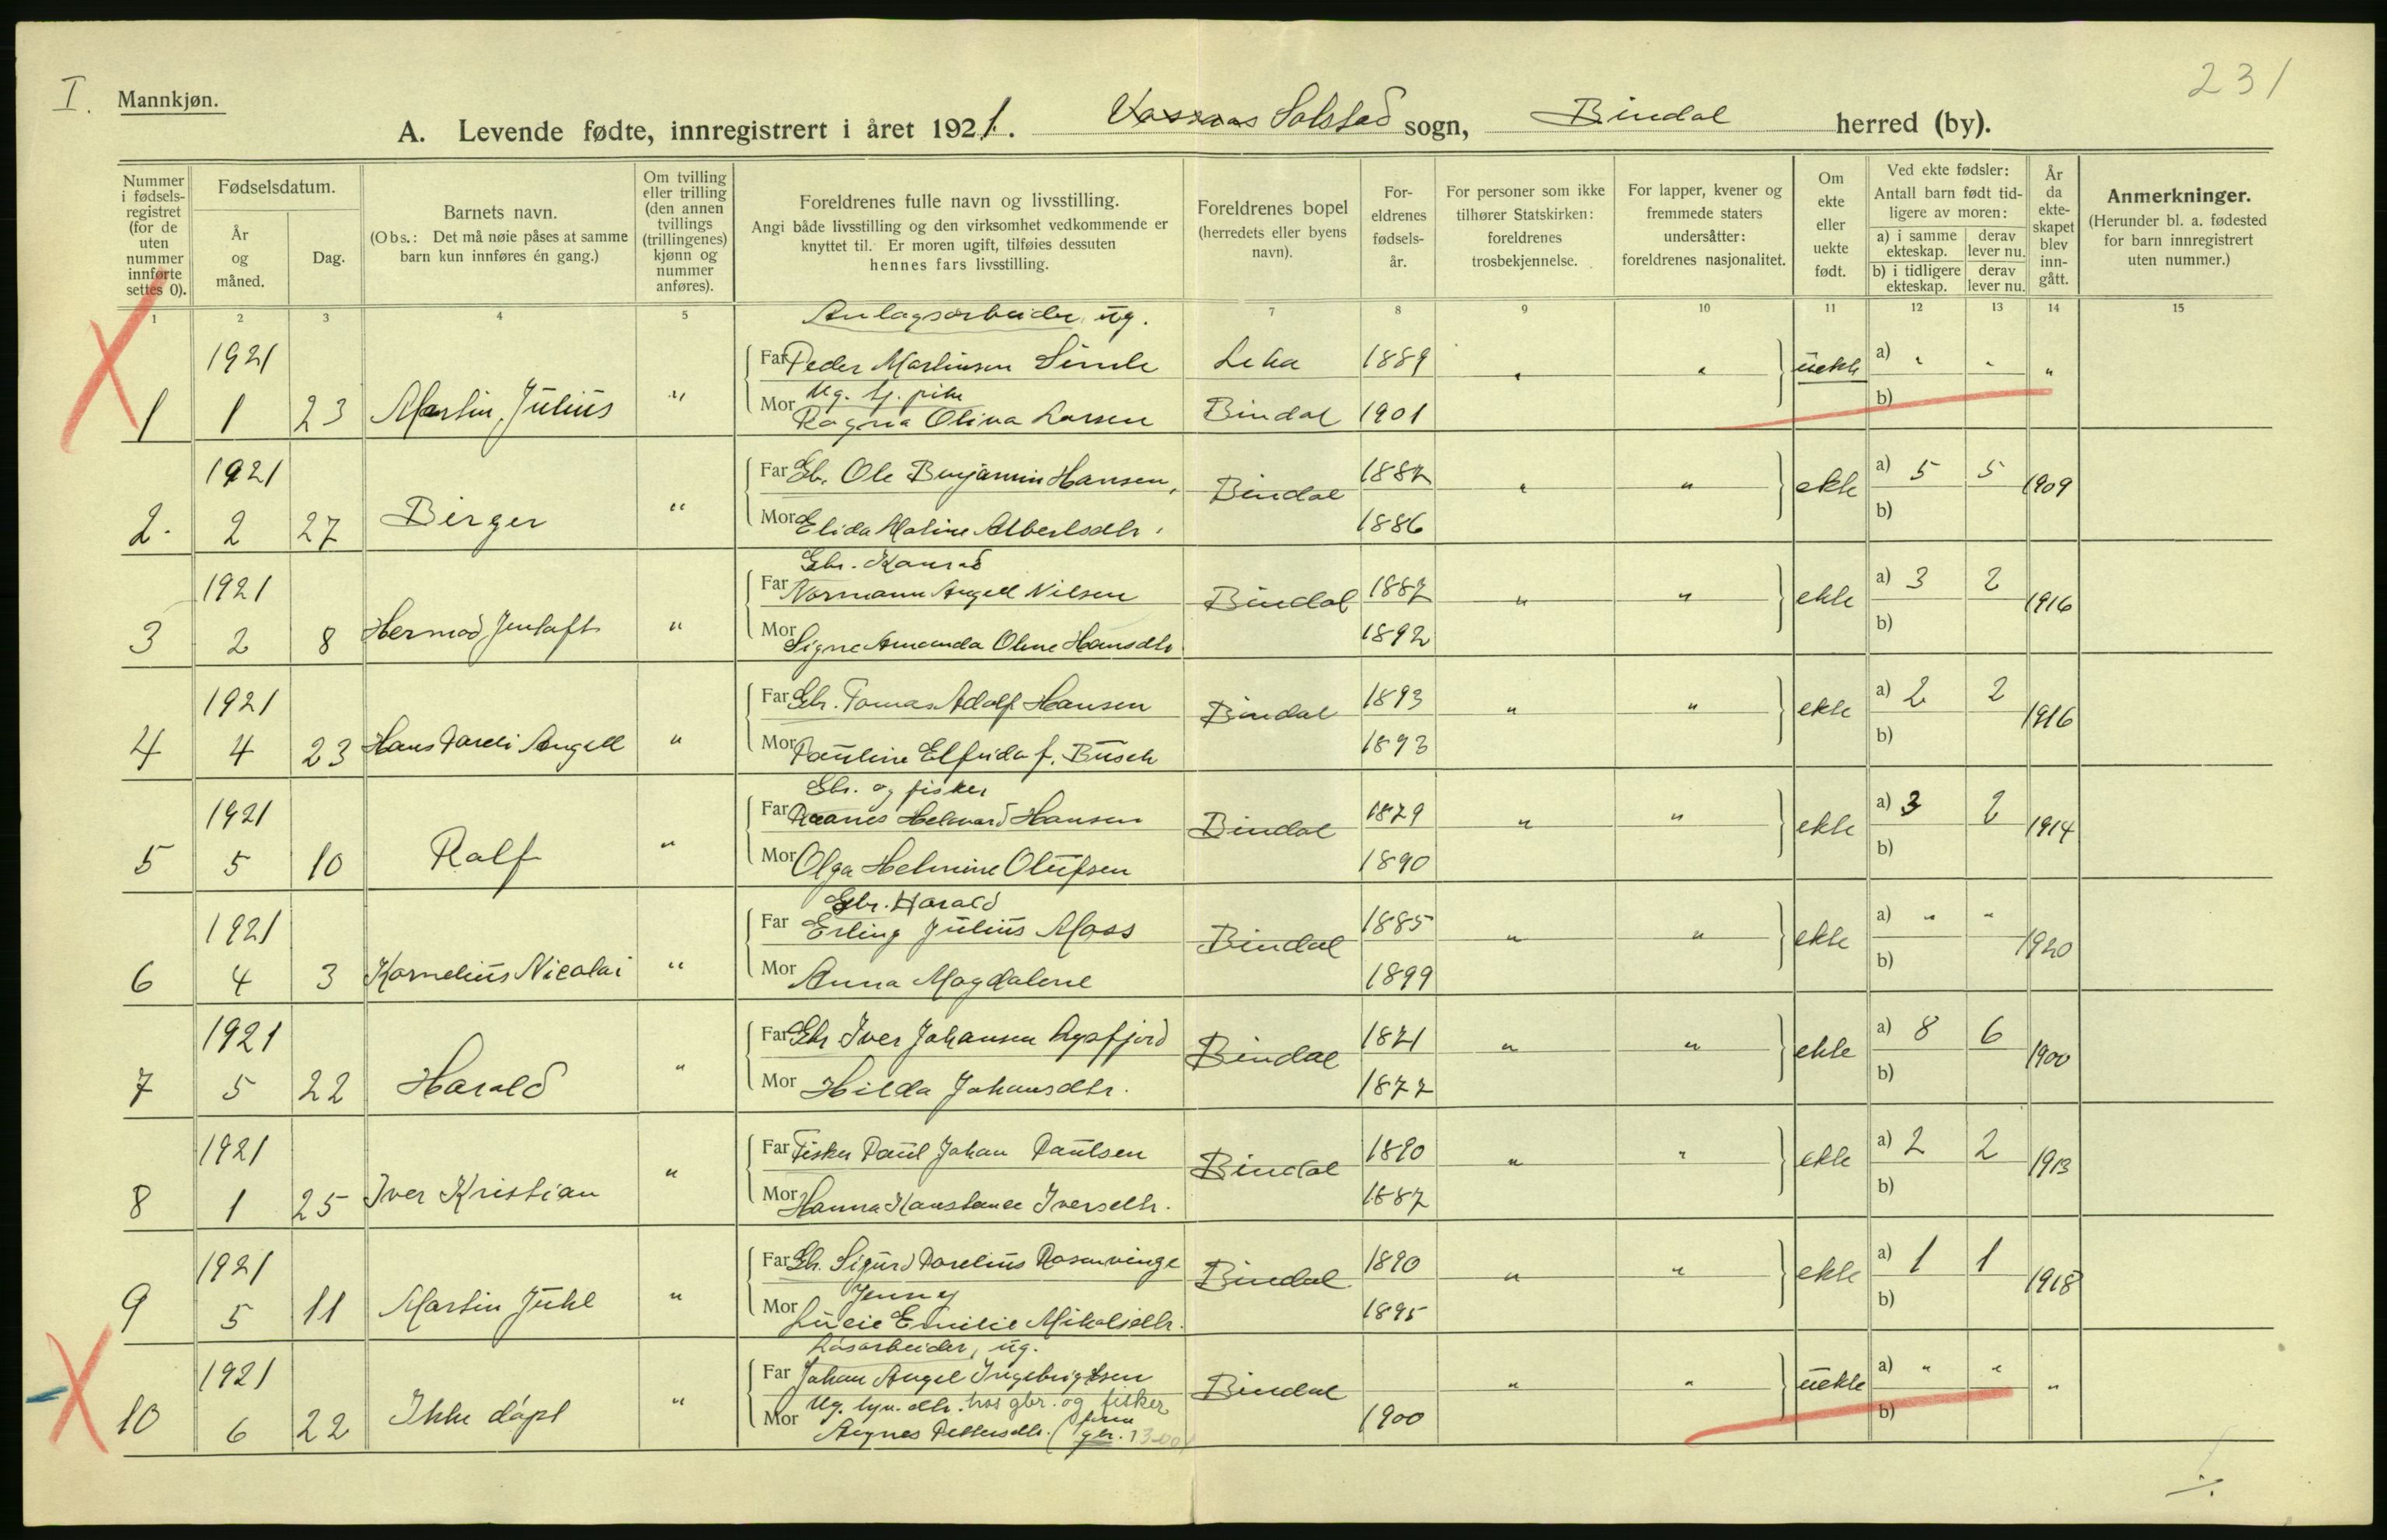 I. Mannkjøn. 231
A. Levende fødte, innregistrert i året 1921. Solstad sogn, Bindal herred (by).
Nummer i fødsels-registret (for de uten nummer innførte settes 0).
Fødselsdatum.
År og måned.
Dag.
Barnets navn.
(Obs.: Det må nøie påses at samme barn kun innføres én gang.)
Om tvilling eller trilling (den annen tvillings (trillingenes) kjønn og nummer anføres).
Foreldrenes fulle navn og livsstilling.
Angi både livsstilling og den virksomhet vedkommende er knyttet til. Er moren ugift, tilføies dessuten hennes fars livsstilling.
Foreldrenes bopel (herredets eller byens navn).
For-eldrenes fødsels-år.
For personer som ikke tilhører Statskirken: foreldrenes trosbekjennelse.
For lapper, kvener og fremmede staters undersåtter: foreldrenes nasjonalitet.
Om ekte eller uekte født.
Ved ekte fødsler:
Antall barn født tid-ligere av moren:
a) i samme ekteskap. derav lever nu.
b) i tidligere ekteskap. derav lever nu.
År da ekte-skapet blev inn-gått.
Anmerkninger.
(Herunder bl. a. fødested for barn innregistrert uten nummer.)
1 2 3 4 5 7 8 9 10 11 12 13 14 15
Anlagsarbeider, ug.
1921 Far Peder Martinsen Leka 1889 " " uekte a) " " "
Ug. tj. pike
1 1 23 Martin Julius " Mor Ragna Oliva Larsen Bindal 1901 b)
1921 Far Gb. Ole Benjamin Hansen, Bindal 1887 " " ekte a) 5 5 1909
2. 2 27 Birger " Mor Elida Maline Albertsdtr. 1886 b)
Gbr. Konrad
1921 Far Normann Angell Nilsen Bindal 1887 " " ekte a) 3 2 1916
3 2 8 Hermod Jentoft " Mor Signe Amanda Oline Hansdtr. 1892 b)
1921 Far Gbr. Tomas Adolf Hansen Bindal 1893 " " ekte a) 2 2 1916
4 4 23 Hans Pareli Angell " Mor Pauline Elfrida f. Busch 1893 b)
Gbr. og fisker
1921 Far Hansen Bindal 1879 " " ekte a) 3 2 1914
5 5 10 Ralf " Mor Olga Helmine Olufsen 1890 b)
Gbr. Harald
1921 Far Erling Julius Moss Bindal 1885 " " ekte a) " " 1920
6 4 3 Kornelius Nicolai " Mor Anna Magdalene 1899 b)
1921 Far Gbr Iver Johansen Bindal 1871 " " ekte a) 8 6 1900
7 5 22 Harald " Mor Hilda Johansdtr. 1877 b)
1921 Far Fisker Paul Johan Paulsen Bindal 1890 " " ekte a) 2 2 1913
8 1 25 Iver Kristian " Mor Hanna Konstance Iversdtr. 1887 b)
1921 Far Gbr. Sigurd Parelius Rosenvinge Bindal 1890 " " ekte a) 1 1 1918
Jenny
9 5 11 Martin Juhl " Mor Lucie Emilie Mikalsdtr. 1895 b)
Løsarbeider, ug.
1921 Far Johan Angel Ingebrigtsen Bindal " " uekte a) " " "
Ug. dtr. hos gbr. og fisker
10 6 22 Ikke døpt " Mor Agnes Pettersdtr. (faren gbr. 1300) 1900 b)